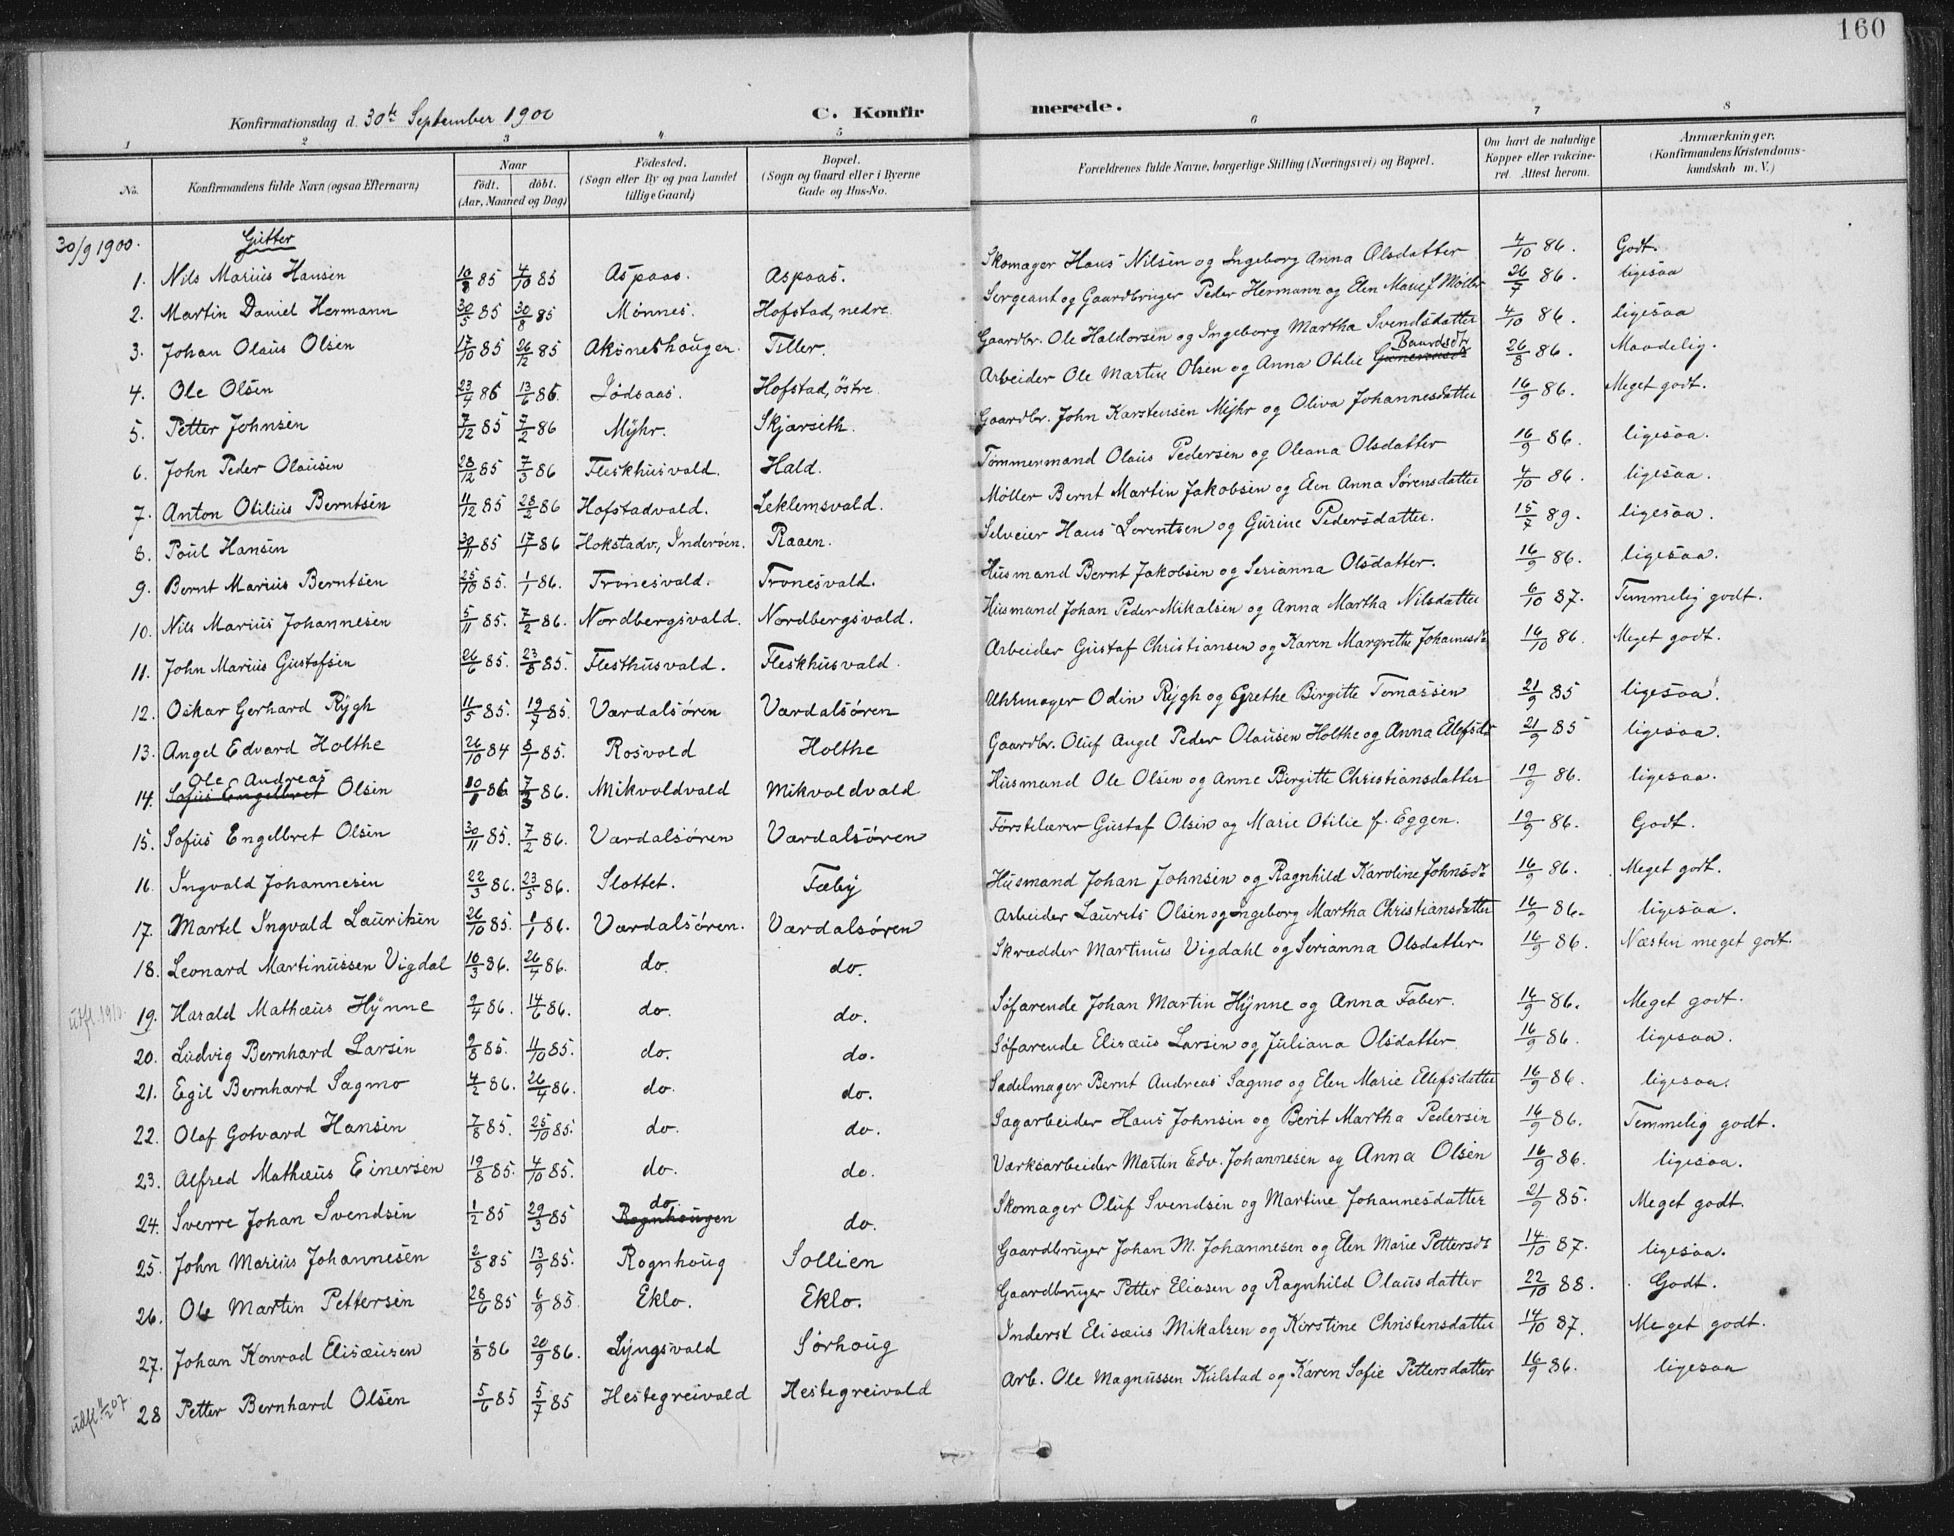 160
Konfirmationsdag d. 30te September 1900
C. Konfirmerede.
1 2 3 4 5 6 7 8
No. Konfirmandens fulde Navn (ogsaa Efternavn) Naar født. døbt. (Aar, Maaned og Dag) Fødested. (Sogn eller By og paa Landet tillige Gaard) Bopæl. (Sogn og Gaard eller i Byerne Gade og Hus-No. Forældrenes fulde Navne, borgerlige Stilling (Næringsvei) og Bopæl. Om havt de naturlige Kopper eller vakcineret. Attest herom. Anmærkninger. (Konfirmandens Kristendomskundskab m. V.)
30/9 1900. Gutter
1. Nils Marius Hansen 10/8 85 4/10 85 Aspaas. Aspaas. Skomager Hans Nilsen og Ingeborg Anna Olsdatter 4/10 86. Godt.
2. Martin Daniel Hermann 30/5 85 30/8 85 Mönnes. Hofstad, nedre. Sergeant og Gaardbruger Peder Hermann og Elen Marie f. Møller 26/7 86. ligesaa
3. Johan Olaus Olsen 17/10 85 26/12 85 Aksneshaugen. Tiller. Gaardbr. Ole Haldorsen og Ingeborg Martha Svendsdatter 4/10 86. ligesaa
4. Ole Olsen 23/4 86 13/6 86. Jødsaas. Hofstad, östre. Arbeider Ole Martin Olsen og Anna Otilie Baardsdtr 26/8 86. Maadelig.
5. Petter Johnsen 7/12 85 7/2 86 Myhr. Skjærseth. Gaardbr. John Karstensen Mijhr og Oliva Johannesdatter 16/9 86. Meget godt.
6. John Peder Olausen 28/12 85 7/3 86 Fleskhusvald. Hald. Tømmermand Olaus Pedersen og Oleana Olsdatter 16/9 86. ligesaa.
7. Anton Otilius Berntsen 11/12 85 28/2 86 Hofstadvald. Leklemsvald. Møller Bernt Martin Jakobsen og Elen Anna Sørensdatter 4/10 86. ligesaa.
8. Poul Hansen 30/11 85 17/1 86 Hokstadv., Inderøen. Raaen. Selveier Hans Lorentsen og Gurine Pedersdatter. 15/7 89. ligesaa.
9. Bernt Marius Berntsen 25/10 85. 1/1 86. Tronesvald. Tronesvald. Husmand Bernt Jakobsen og Serianna Olsdatter. 16/9 86. ligesaa.
10. Nils Marius Johannesen 5/11 85. 7/2 86. Nordbergsvald. Nordbergsvald. Husmand Johan Peder Mikalsen og Anna Martha Nilsdatter 6/10 87. Temmelig godt.
11. John Marius Gustafsen 26/6 85. 23/8 85. Flesthusvald. Fleskhusvald. Arbeider Gustaf Christiansen og Karen Margrethe Johannesdtr 14/10 86. Meget godt.
12. Oskar Gerhard Rygh 11/5 85. 19/7 85. Værdalsøren Værdalsøren Uhrmager Odin Rygh og Grethe Birgitte Tomassen 21/9 85 ligesaa.
13. Angel Edvard Holthe 26/10 84 8/1 85. Rosvold Holthe Gaardbr. Oluf Angel Peder Olausen Holthe og Anna Elefsdtr 21/9 85 ligesaa.
14. Ole Andreas Sofus Engelbret Olsen 10/1 86 7/3 86. Mikvoldvald Mikvoldvald Husmand Ole Olsen og Anne Birgitte Christiansdatter 19/9 86. ligesaa.
15. Sofus Engelbret Olsen 30/11 85. 7/2 86. Værdalsøren Værdalsøren Førstelærer Gustaf Olsen og Marie Otilie f. Eggen. 19/9 86. Godt.
16. Ingvald Johannesen 22/3 86. 23/5 86. Slottet. Fæby Husmand Johan Johnsen og Ragnhild Karoline Johnsdtr 16/9 86. Meget godt.
17. Martel Ingvald Lauritsen 26/10 85. 1/1 86. Værdalsøren. Værdalsøren Arbeider Laurits Olsen og Ingeborg Martha Christiansdatter 16/9 86. ligesaa.
18. Leonard Martinussen Vigdal 10/3 86. 26/4 86. do. do. Skrædder Martinus Vigdahl og Serianna Olsdatter. 16/9 86. Næsten meget godt.
utfl. 1910. 19. Harald Mathæus Hynne 9/4 86. 14/6 86. do. do. Søfarende Johan Martin Hynne og Anna Faber. 16/9 86. Meget godt.
20. Ludvig Bernhard Larsen 9/8 85. 11/10 85. do. do. Søfarende Elisæus Larsen og Juliana Olsdatter. 16/9 86. ligesaa.
21. Egil Bernhard Sagmo 4/2 86. 26/4 86. do. do. Sadelmager Bernt Andreas Sagmo og Elen Marie Elefsdatter 16/9 86. ligesaa.
22. Olaf Gotvard Hansen 7/8 85. 25/10 85. do. do. Sagarbeider Hans Johnsen og Berit Martha Pedersen 16/9 86. Temmelig godt.
23. Alfred Mathæus Einersen 19/8 85. 4/10 85. do. do. Værksarbeider Martin Edv. Johannesen og Anna Olsen 16/9 86. ligesaa.
24. Sverre Johan Svendsen 1/2 85 29/3 85 do. Rognhougen do. Skomager Oluf Svendsen og Martine Johannesdatter 21/9 85. Meget godt.
25. John Marius Johannesen 2/8 85 13/9 85. Rognhoug Sollien Gaardbruger Johan M. Johannesen og Elen Marie Pettersdtr 14/10 87. ligesaa.
26. Ole Martin Pettersen 28/6 85 6/9 85. Eklo. Eklo. Gaardbruger Petter Eliasen og Ragnhild Olausdatter 22/10 88. Godt.
27. Johan Konrad Elisæusen 1/8 86 20/9 86. Lyngsvald Sørhoug Inderst Elisæus Mikalsen og Kirstine Christensdatter 14/10 87. Meget godt.
udfl. 4/2 07. 28 Petter Bernhard Olsen 5/6 85 5/7 85 Hestegreivald Hestegreivald Arb. Ole Magnussen Kulstad og Karen Sofie Pettersdatter 16/9 86. ligesaa